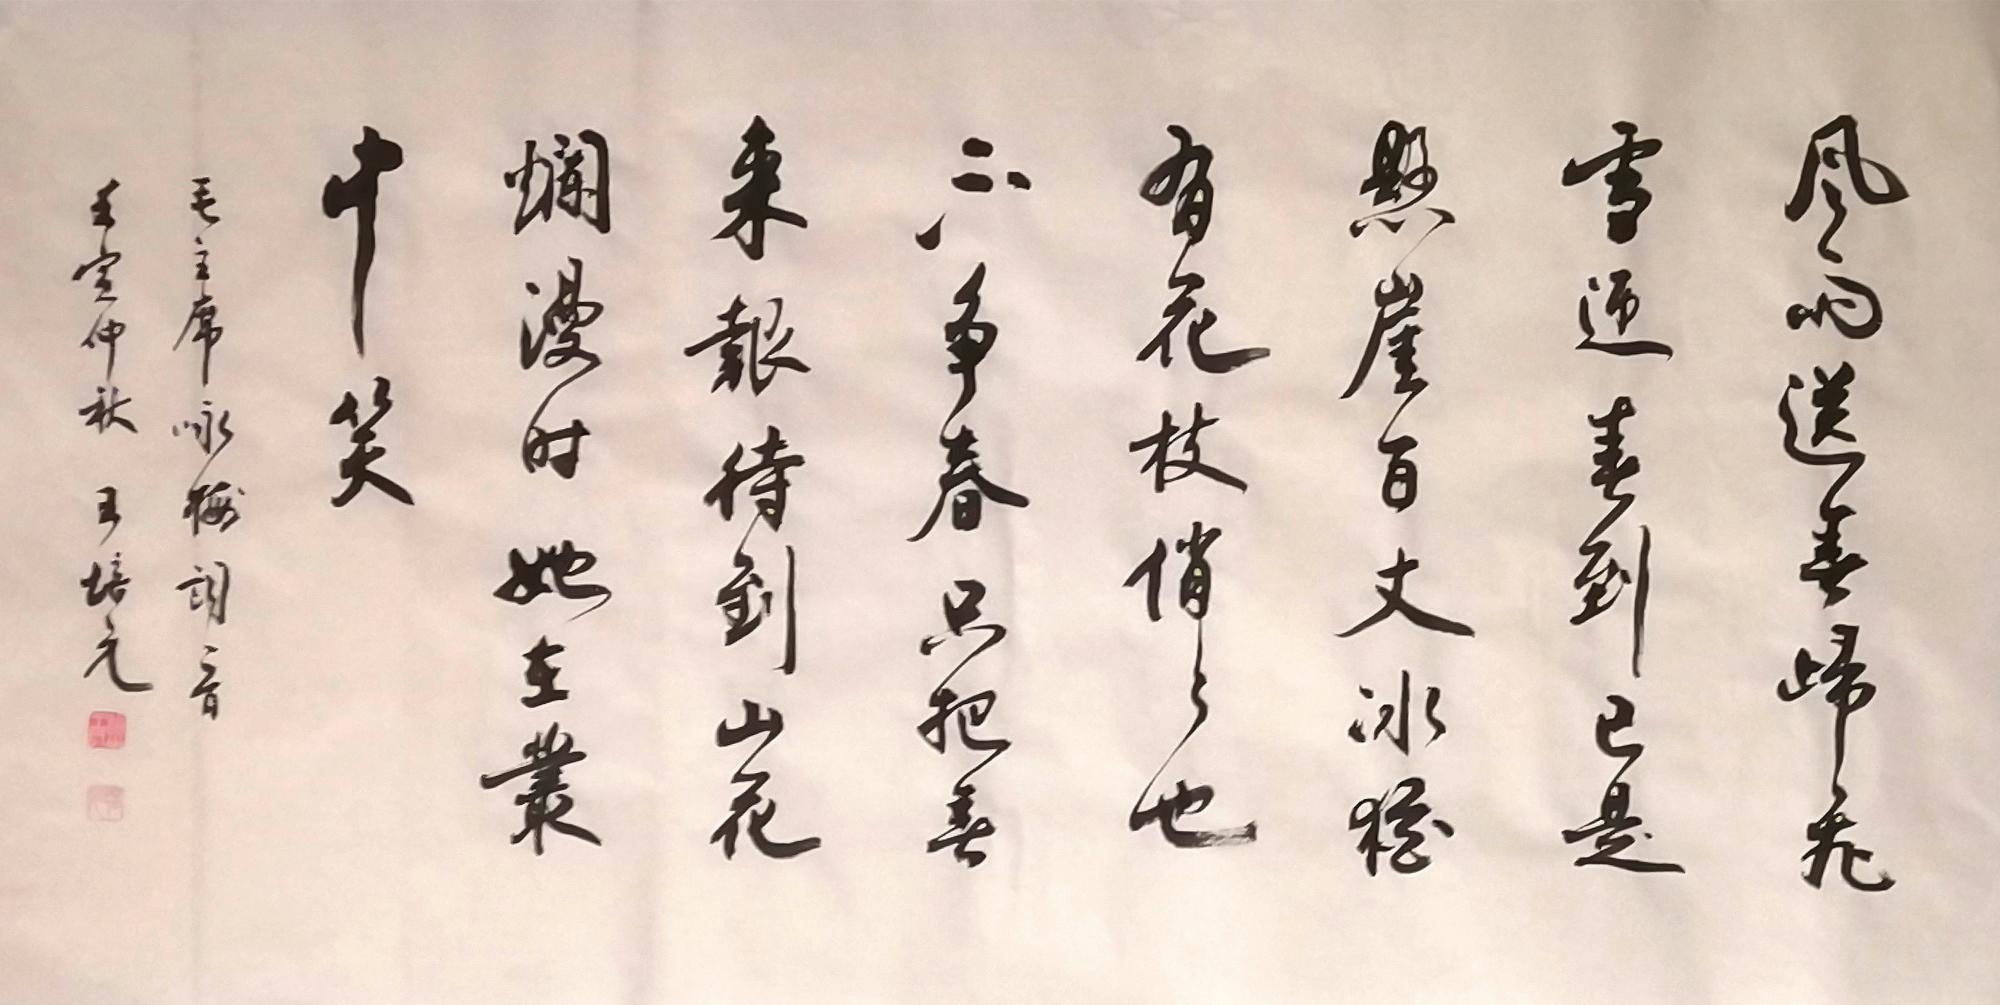 风雨送春歸飛
雪迎春到已是
懸崖百丈冰猶
有花枝俏〻也
不争春只把春
来報待到山花
爛漫时她在叢
中笑
毛主席咏梅词一首
壬寅仲秋 王培元